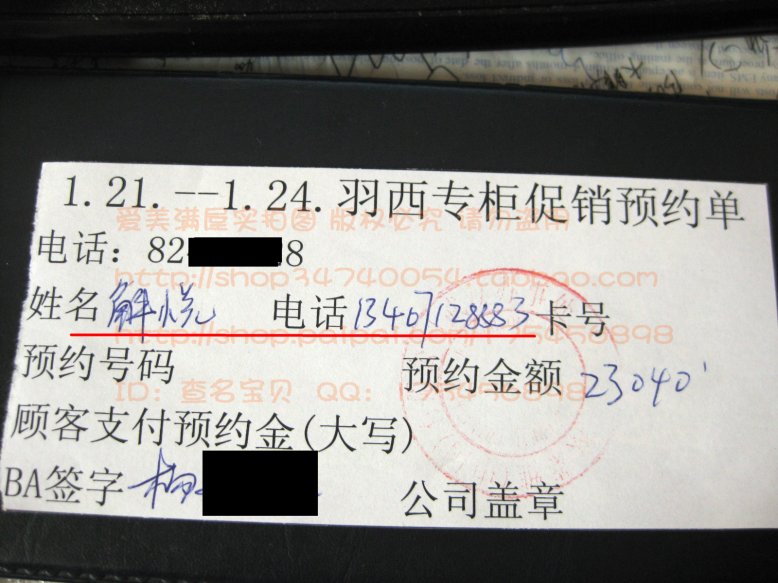 1.21.--1.24.羽西专柜促销预约单
爱美满屋实拍图 版权必究 请勿盗用
电话: 82 8
http://shop34740054.taobao.com
姓名 解悦 电话 13407128883 卡号
预约号码 预约金额 23040
ID: 查名宝贝 QQ:
顾客支付预约金(大写)
BA签字 柳 公司盖章